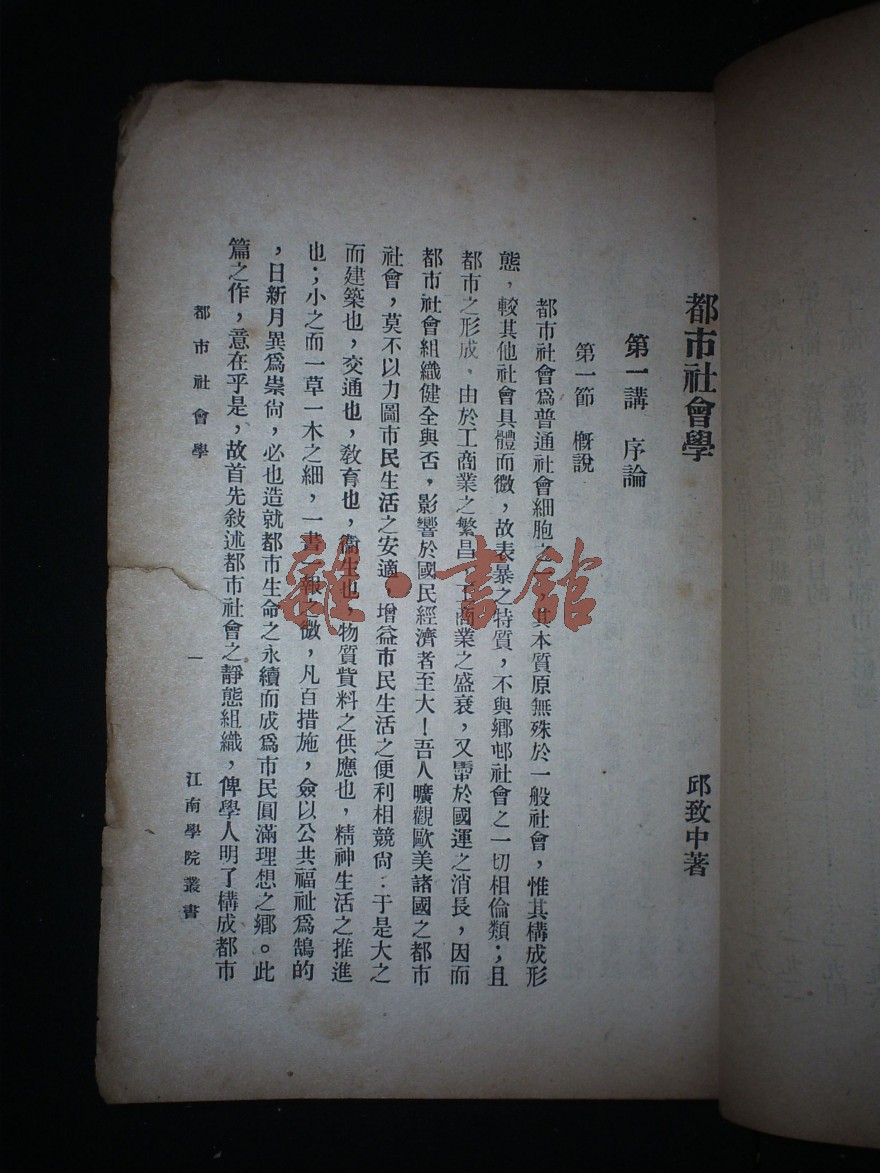 都市社會學
邱致中著
第一講 序論
第一節 概說
都市社會爲普通社會細胞之一,其本質原無殊於一般社會,惟其構成形
態,較其他社會具體而微,故表暴之特質,不與鄉邨社會之一切相倫類;且
都市之形成,由於工商業之繁昌,工商業之盛衰,又繫於國運之消長,因而
都市社會組織健全與否,影響於國民經濟者至大!吾人曠觀歐美諸國之都市
社會,莫不以力圖市民生活之安適,增益市民生活之便利相競尙:于是大之
而建築也,交通也,敎育也,衞生也,物質貲料之供應也,精神生活之推進
也;小之而一草一木之細,一書一報之微,凡百措施,僉以公共福祉爲鵠的
,日新月異爲崇尙,必也造就都市生命之永續而成爲市民圓滿理想之鄉。此
篇之作,意在乎是,故首先敍述都市社會之靜態組織,俾學人明了構成都市
都市社會學
一
江南學院叢書
雜·書館